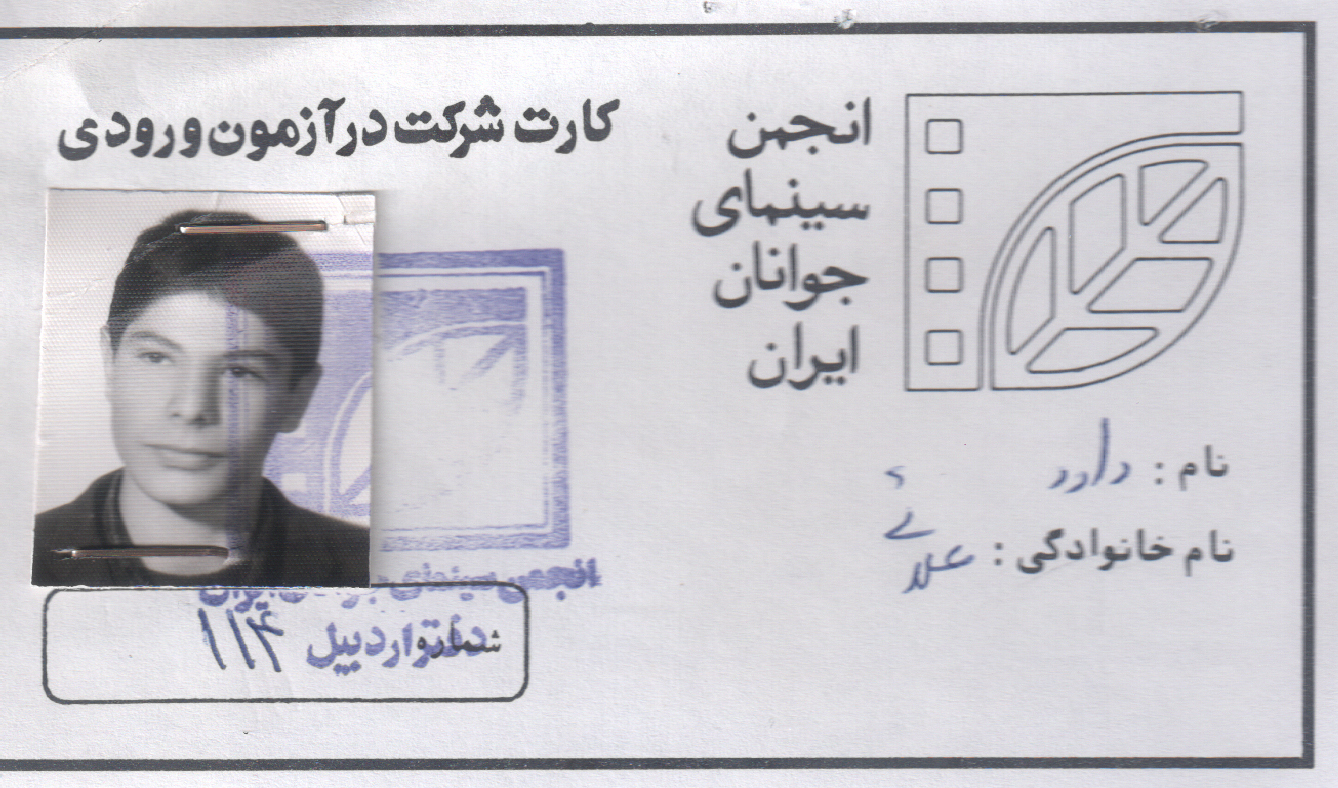 کارت شرکت در آزمون ورودی
انجمن
سینمای
جوانان
ایران
نام : داود
نام خانوادگی :
انجمن سینمای جوانان ایران
دفتر اردبیل
شماره ۱۱۴